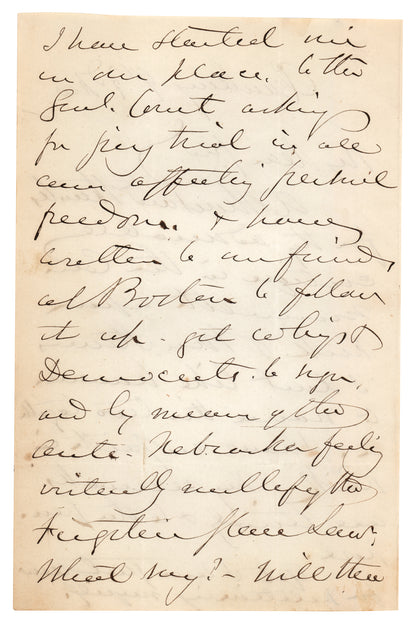 I have started one
in our place. to the
Genl. Court asking
for jury trial in all
cases affecting personal
freedom. & have
written to our friends
at Boston to follow
it up - get whigs &
Democrats to sign,
and by means of the
anti-Nebraska feeling
virtually nullify the
Fugitive Slave Law.
What say? - Will thee